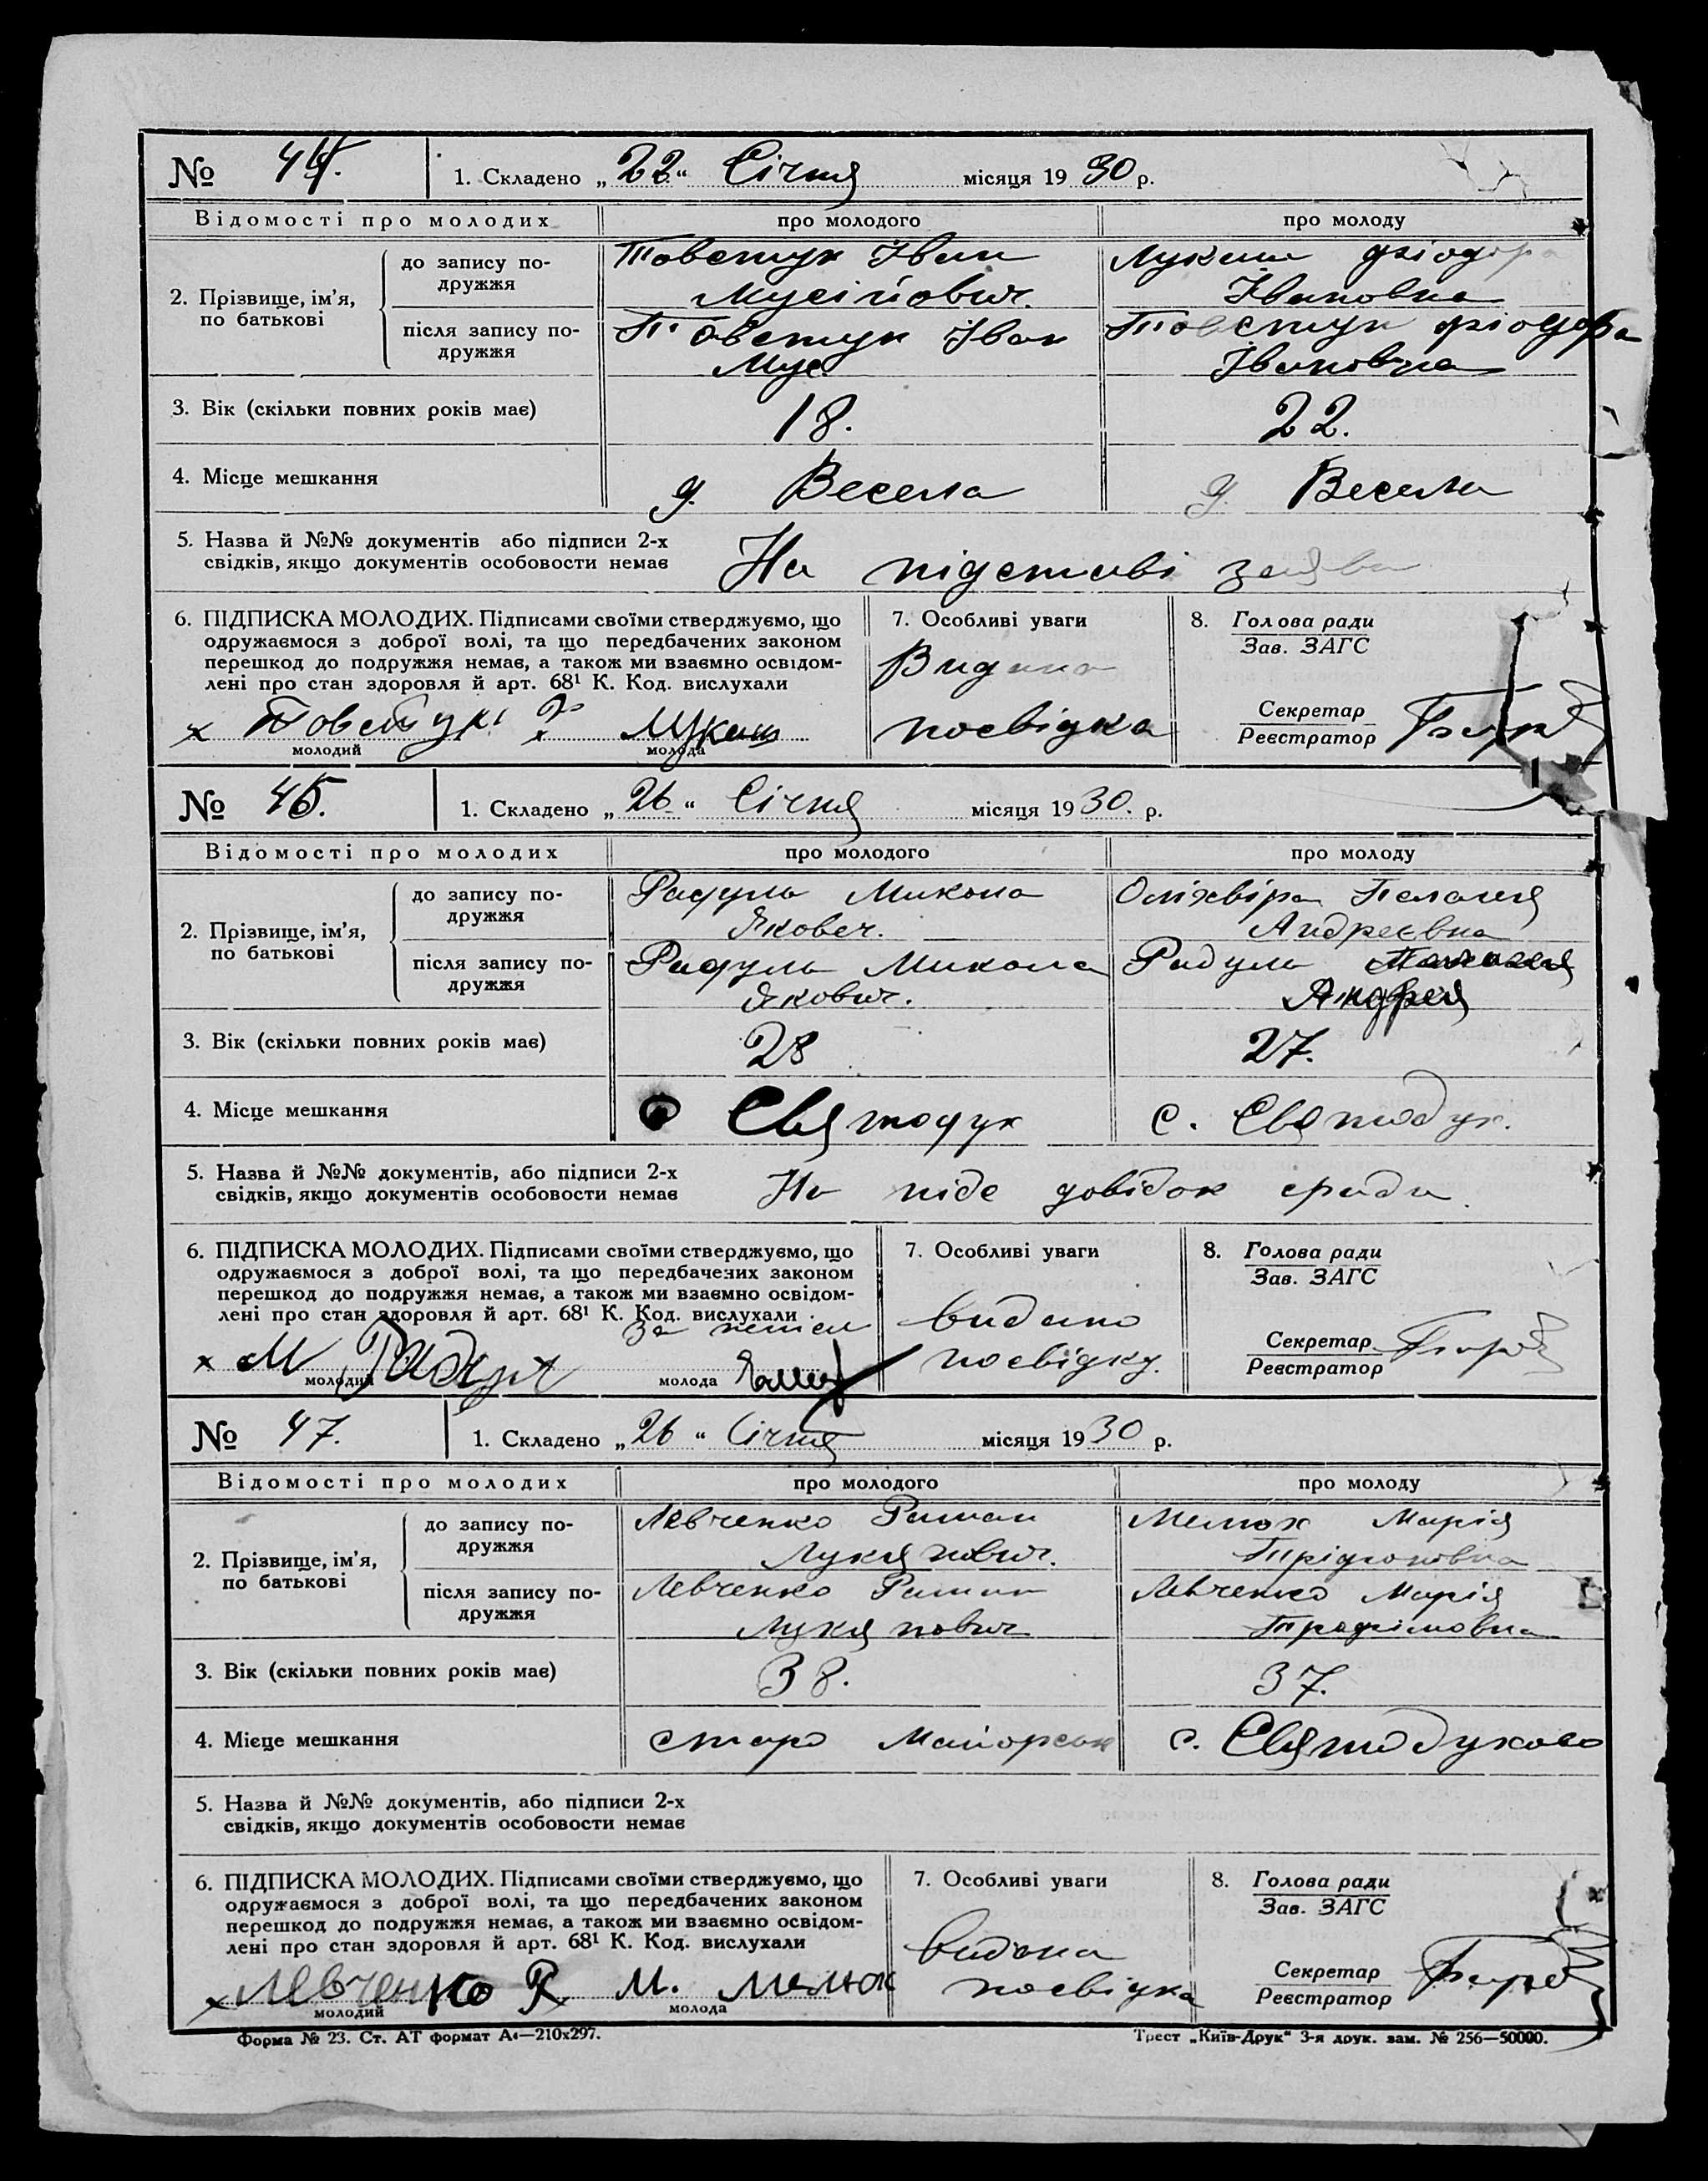 № 1. Складено „ 22 “ Січня місяця 19 30 р.
Відомості про молодих про молодого про молоду
2. Прізвище, ім’я, по батькові
до запису подружжя
Товстук Іван
Мусійович.
Лукаш
Івановна
після запису подружжя
Товстук Іван
Мус
Товстук
Івановна
3. Вік (скільки повних років має) 18. 22.
4. Місце мешкання д. Весела д. Весела
5. Назва й №№ документів або підписи 2-х
свідків, якщо документів особовости немає
На підставі заява
6. ПІДПИСКА МОЛОДИХ. Підписами своїми стверджуємо, що
одружаємося з доброї волі, та що передбачених законом
перешкод до подружжя немає, а також ми взаємно освідом-
лені про стан здоровля й арт. 68¹ К. Код. вислухали
х Товстук х Лукаш
молодий молода
7. Особливі уваги
Видана
посвідка
8. Голова ради
Зав. ЗАГС
Секретар
Реєстратор
№ 1. Складено „ 26 “ Січня місяця 19 30. р.
Відомості про молодих про молодого про молоду
2. Прізвище, ім’я, по батькові
до запису подружжя
Радула Микола
Пелагея
Андреевна
після запису подружжя
Радула Микола
Якович.
Радула
Андрея
3. Вік (скільки повних років має) 28 27.
4. Місце мешкання Святодух с. Святодух.
5. Назва й №№ документів, або підписи 2-х
свідків, якщо документів особовости немає
На підс довідок сради
6. ПІДПИСКА МОЛОДИХ. Підписами своїми стверджуємо, що
одружаємося з доброї волі, та що передбачених законом
перешкод до подружжя немає, а також ми взаємно освідом-
лені про стан здоровля й арт. 68¹ К. Код. вислухали
х М Радул
молодий молода
7. Особливі уваги
видано
посвідку.
8. Голова ради
Зав. ЗАГС
Секретар
Реєстратор
№ 47. 1. Складено „ 26 “ Січня місяця 19 30 р.
Відомості про молодих про молодого про молоду
2. Прізвище, ім’я, по батькові
до запису подружжя
Левченко Раман
Лукянович.
Мелюх Марія
після запису подружжя
Левченко Раман
Лукянович
Левченко Марія
Трафімовна
3. Вік (скільки повних років має) 38. 37.
4. Мієце мешкання старо Майорськ с. Святодухово
5. Назва й №№ документів, або підписи 2-х
свідків, якщо документів особовости немає
6. ПІДПИСКА МОЛОДИХ. Підписами своїми стверджуємо, що
одружаємося з доброї волі, та що передбачених законом
перешкод до подружжя немає, а також ми взаємно освідом-
лені про стан здоровля й арт. 68¹ К. Код. вислухали
х Левченко Р М. Мелюх
молодий молода
7. Особливі уваги
видана
посвідка
8. Голова ради
Зав. ЗАГС
Секретар
Реєстратор
Форма № 23. Ст. АТ формат А4—210х297. Трест „Київ-Друк“ 3-я друк. зам. № 256—50000.